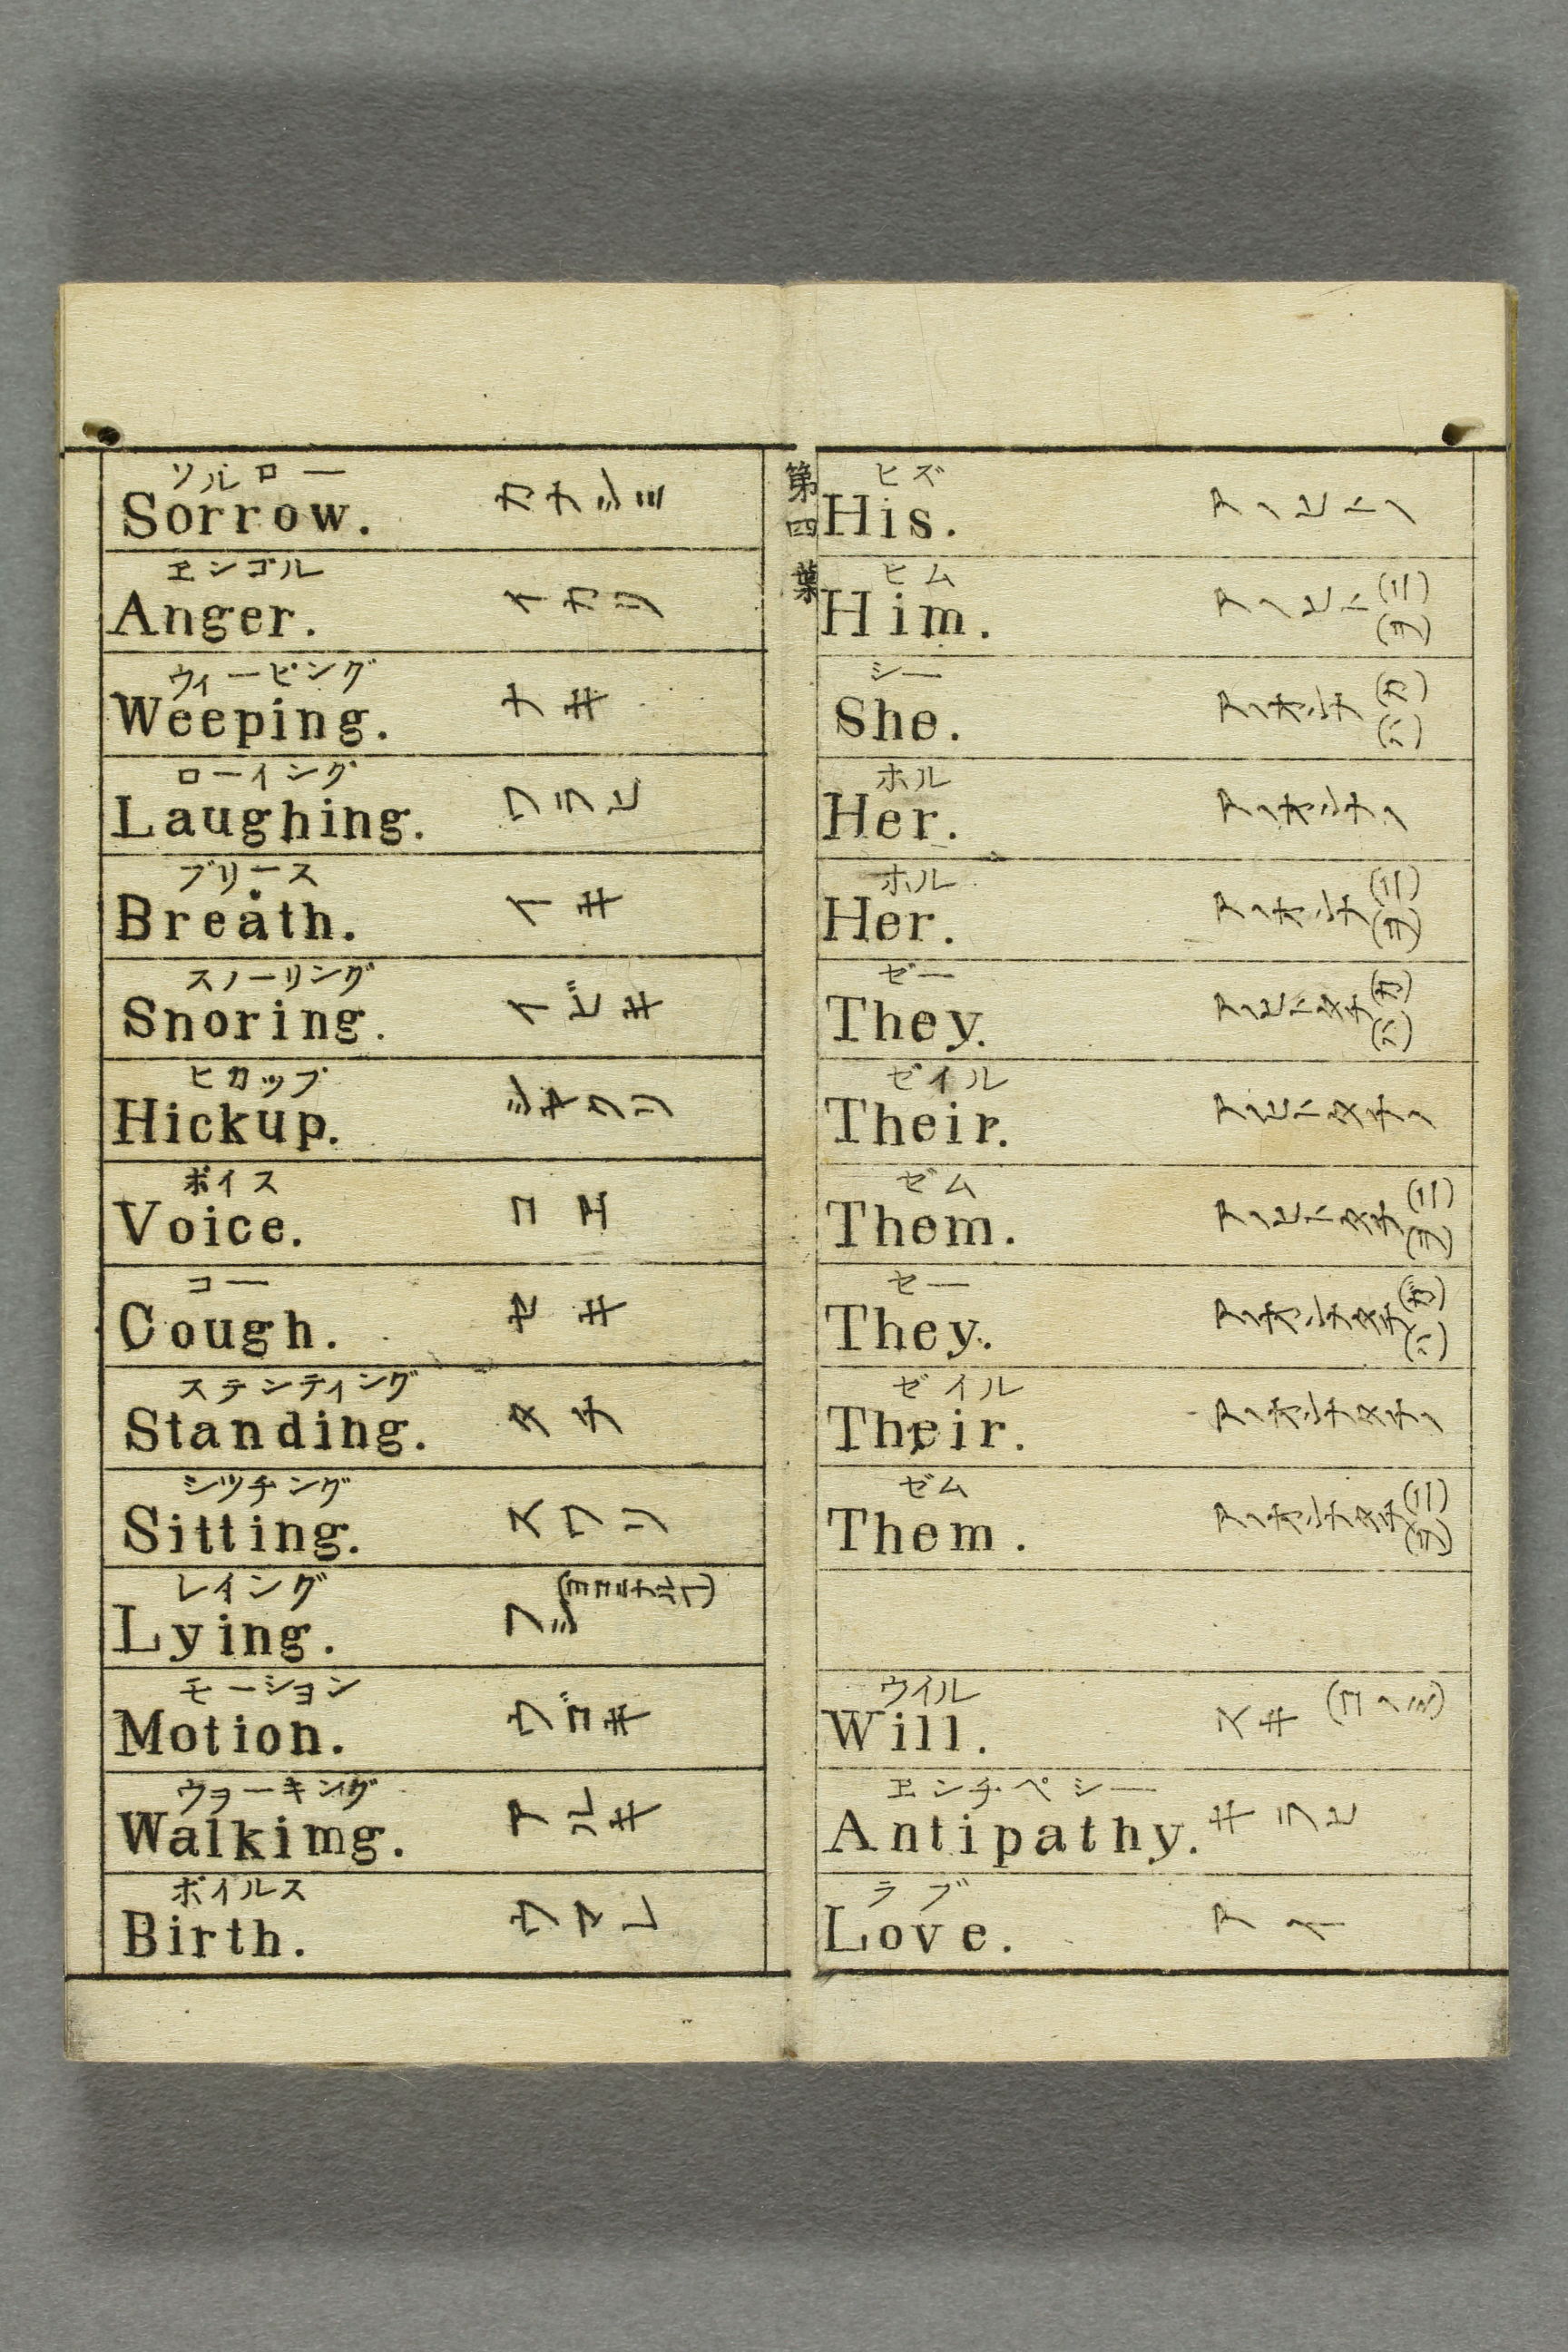 ソルロー
Sorrow. カナシミ
ヱンゴル
Anger. イカリ
ウィーピング
Weeping. ナキ
ローイング
Laughing. ワラヒ
ブリース
Breath. イキ
スノーリング
Snoring. イビキ
ヒカップ
Hickup. シヤクリ
ボイス
Voice. コヱ
コー
Cough. セキ
ステンティング
Standing. タチ
シツチング
Sitting. スワリ
レイング
Lying. フシ
モーション
Motion. ウゴキ
ウョーキング
Walkimg. アルキ
ボイルス
Birth. ウマレ
第四葉
ヒズ
His. アノヒトノ
ヒム
Him. アノヒト(ニ)(ヲ)
シー
She. アノオンナ(カ)(ハ)
ホル
Her. アノオンナノ
ホル
Her. アノオンナ(ニ)(ヲ)
ゼー
They. アノヒトタチ(カ)(ハ)
ゼイル
Their. アノヒトタチノ
ゼム
Them. アノヒトタチ(ニ)(ヲ)
セー
They. アノオンナタチ(ガ)(ハ)
ゼイル
Their. アノオンナタチノ
ゼム
Them. アノオンナタチ(ニ)(ヲ)
ウイル
Will. スキ (コノミ)
ヱンチペシー
Antipathy. キラヒ
ラブ
Love. アイ